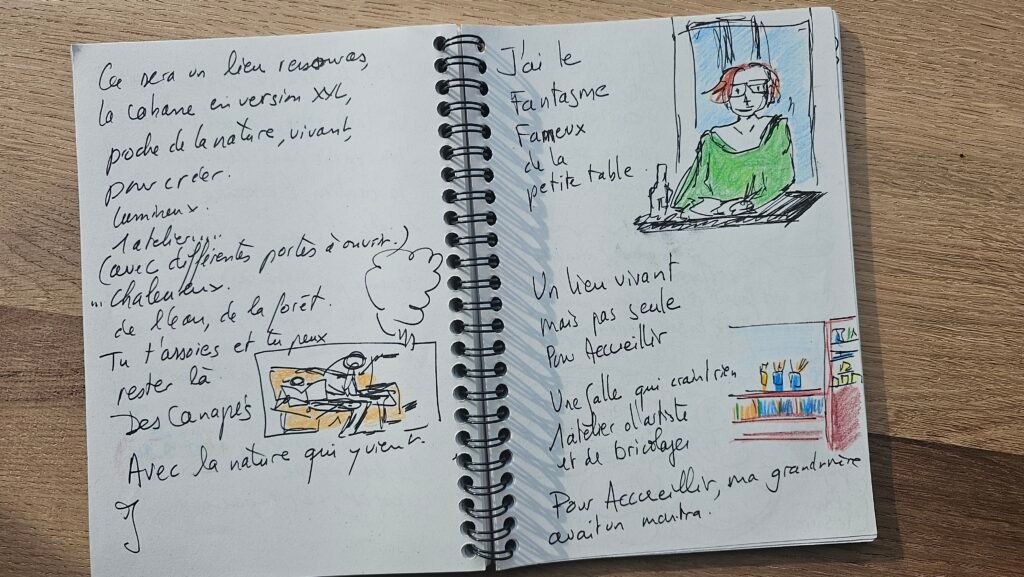 Ce sera un lieu ressources,
la cabane en version XXL,
proche de la nature, vivant,
pour créer.
lumineux.
1 atelier....
(avec différentes portes à ouvrir.)
... chaleureux.
de l'eau, de la forêt.
Tu t'assoies et tu peux
rester là
Des Canapés
Avec la nature qui y vient.
J'ai le
Fantasme
Fameux
de la
petite table.
Un lieu vivant
mais pas seule
Pour Accueillir
Une salle qui craint rien
1 atelier d'artiste
et de bricolage
Pour Accueillir, ma grand-mère
avait un mantra.